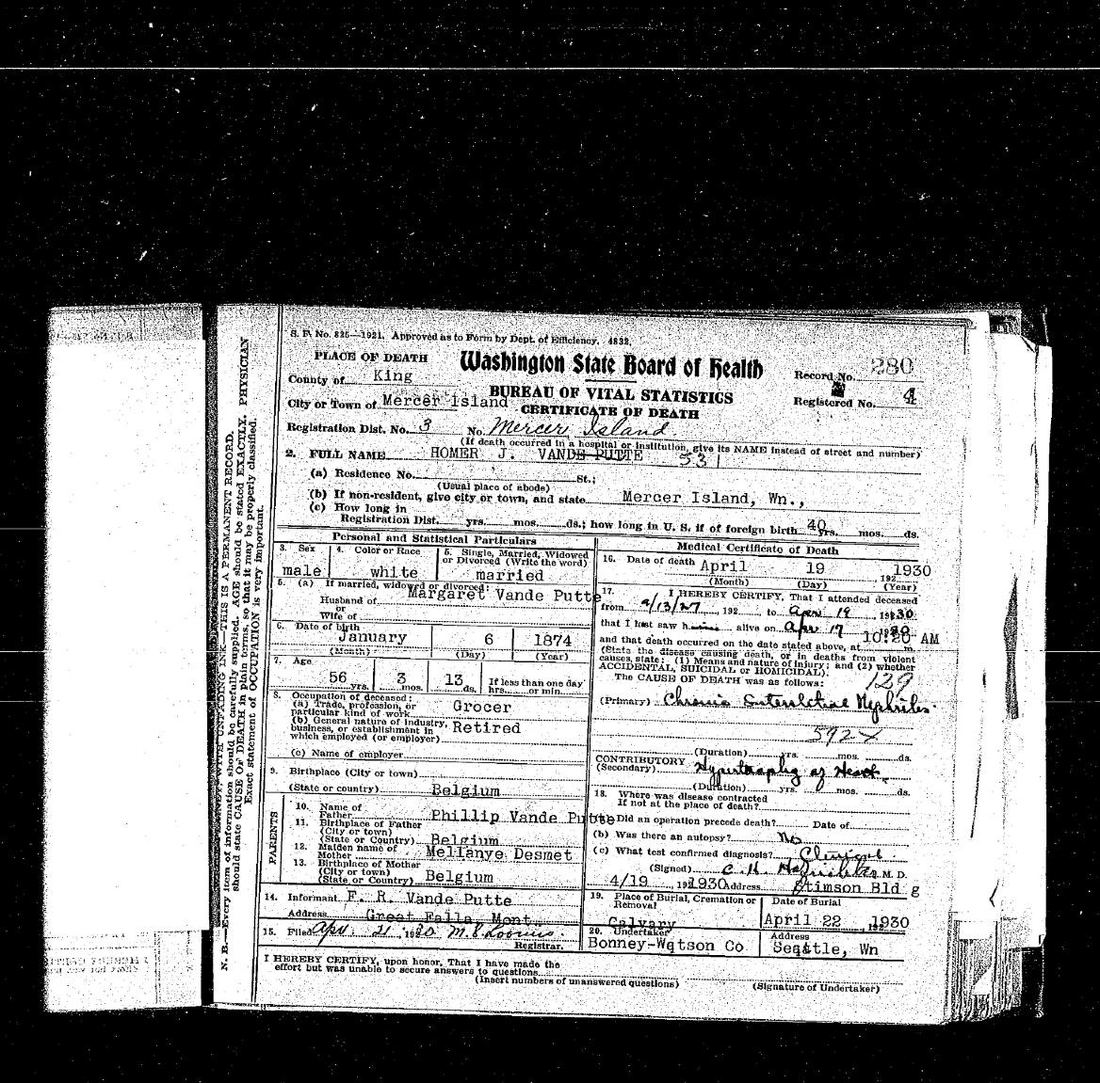 S. F. No. 825—1921. Approved as to Form by Dept. of Efficiency. 4832.
PLACE OF DEATH
Washington State Board of Health
Record No. 280
County of King
BUREAU OF VITAL STATISTICS
Registered No. 4
City or Town of Mercer Island
CERTIFICATE OF DEATH
Registration Dist. No. 3 No. Mercer Island
(If death occurred in a hospital or institution, give its NAME instead of street and number)
2. FULL NAME HOMER J. VANDE PUTTE 531
(a) Residence No. St.;
(Usual place of abode)
(b) If non-resident, give city or town, and state Mercer Island, Wn.,
(c) How long in
Registration Dist. yrs. mos. ds.; how long in U. S. if of foreign birth 40 yrs. mos. ds.
Personal and Statistical Particulars
3. Sex
male
4. Color or Race
white
5. Single, Married, Widowed
or Divorced (Write the word)
married
5. (a) If married, widowed or divorced:
Husband of Margaret Vande Putte
or
Wife of
6. Date of birth
January 6 1874
(Month) (Day) (Year)
7. Age
56 yrs. 3 mos. 13 ds.
If less than one day
hrs. or min.
8. Occupation of deceased:
(a) Trade, profession, or
particular kind of work Grocer
(b) General nature of industry,
business, or establishment in
which employed (or employer) Retired
(c) Name of employer
9. Birthplace (City or town)
(State or country) Belgium
PARENTS
10. Name of
Father Phillip Vande Putte
11. Birthplace of Father
(City or town)
(State or Country) Belgium
12. Maiden name of
Mother Mellanye Desmet
13. Birthplace of Mother
(City or town)
(State or Country) Belgium
14. Informant F. R. Vande Putte
Address Great Falls, Mont.
15. Filed Apr. 21 1930 M. E. Loomis.
Registrar.
Medical Certificate of Death
16. Date of death April 19 1930
(Month) (Day) 192 (Year)
17. I HEREBY CERTIFY, That I attended deceased
from 9/13/27, 192 to Apr 19 1930
that I last saw him alive on Apr 17 1930
and that death occurred on the date stated above, at 10:20 AM m.
(State the disease causing death, or in deaths from violent
causes, state: (1) Means and nature of injury; and (2) whether
ACCIDENTAL, SUICIDAL or HOMICIDAL).
The CAUSE OF DEATH was as follows: 129
(Primary) Chronic Interstitial Nephritis.
592X
(Duration) yrs. mos. ds.
CONTRIBUTORY
(Secondary) Hypertrophy of Heart.
(Duration) yrs. mos. ds.
18. Where was disease contracted
If not at the place of death?
Did an operation precede death? Date of
(b) Was there an autopsy? No
(c) What test confirmed diagnosis? Clinical.
(Signed) C. H. M. D.
4/19 1930 Address Stimson Bldg
19. Place of Burial, Cremation or
Removal
Calvary
Date of Burial
April 22, 1930
20. Undertaker
Bonney-Watson Co
Address
Seattle, Wn
I HEREBY CERTIFY, upon honor, That I have made the
effort but was unable to secure answers to questions
(Insert numbers of unanswered questions) (Signature of Undertaker)
N. B.—Every item of information should be carefully supplied. AGE should be stated EXACTLY. PHYSICIAN
should state CAUSE OF DEATH in plain terms, so that it may be properly classified.
Exact statement of OCCUPATION is very important.
WITH UNFADING INK—THIS IS A PERMANENT RECORD.